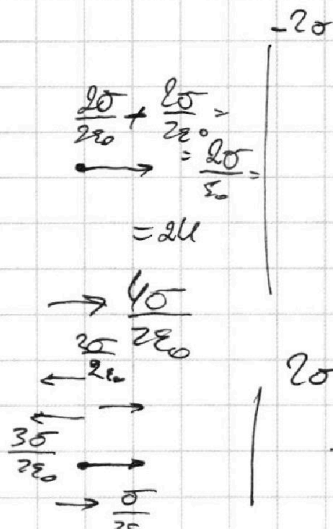 -2σ
2σ/2ε₀ + 2σ/2ε₀ =
= 2σ/ε₀ =
= 2U
→ 4σ/2ε₀
3σ/2ε₀
←
2σ
← →
3σ/2ε₀
→ σ/2ε